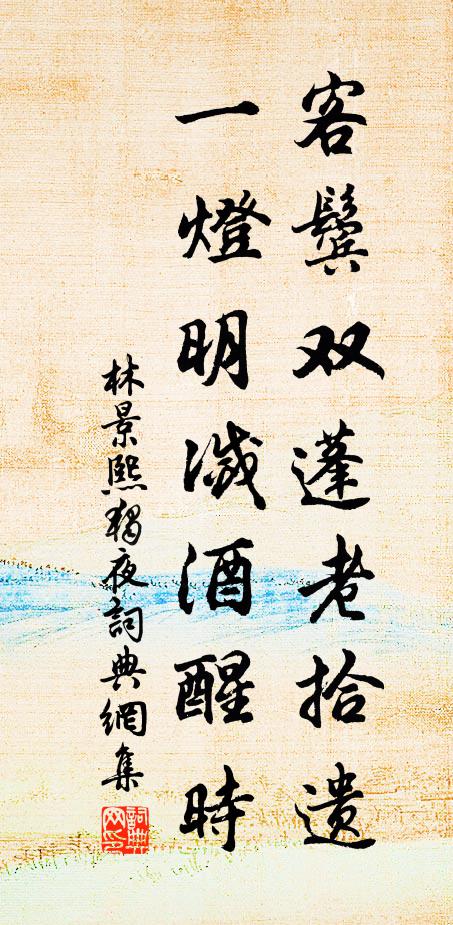 客鬓双蓬老拾遗
一燈明滅酒醒時
林景熙獨夜詞典網集
詞典网印